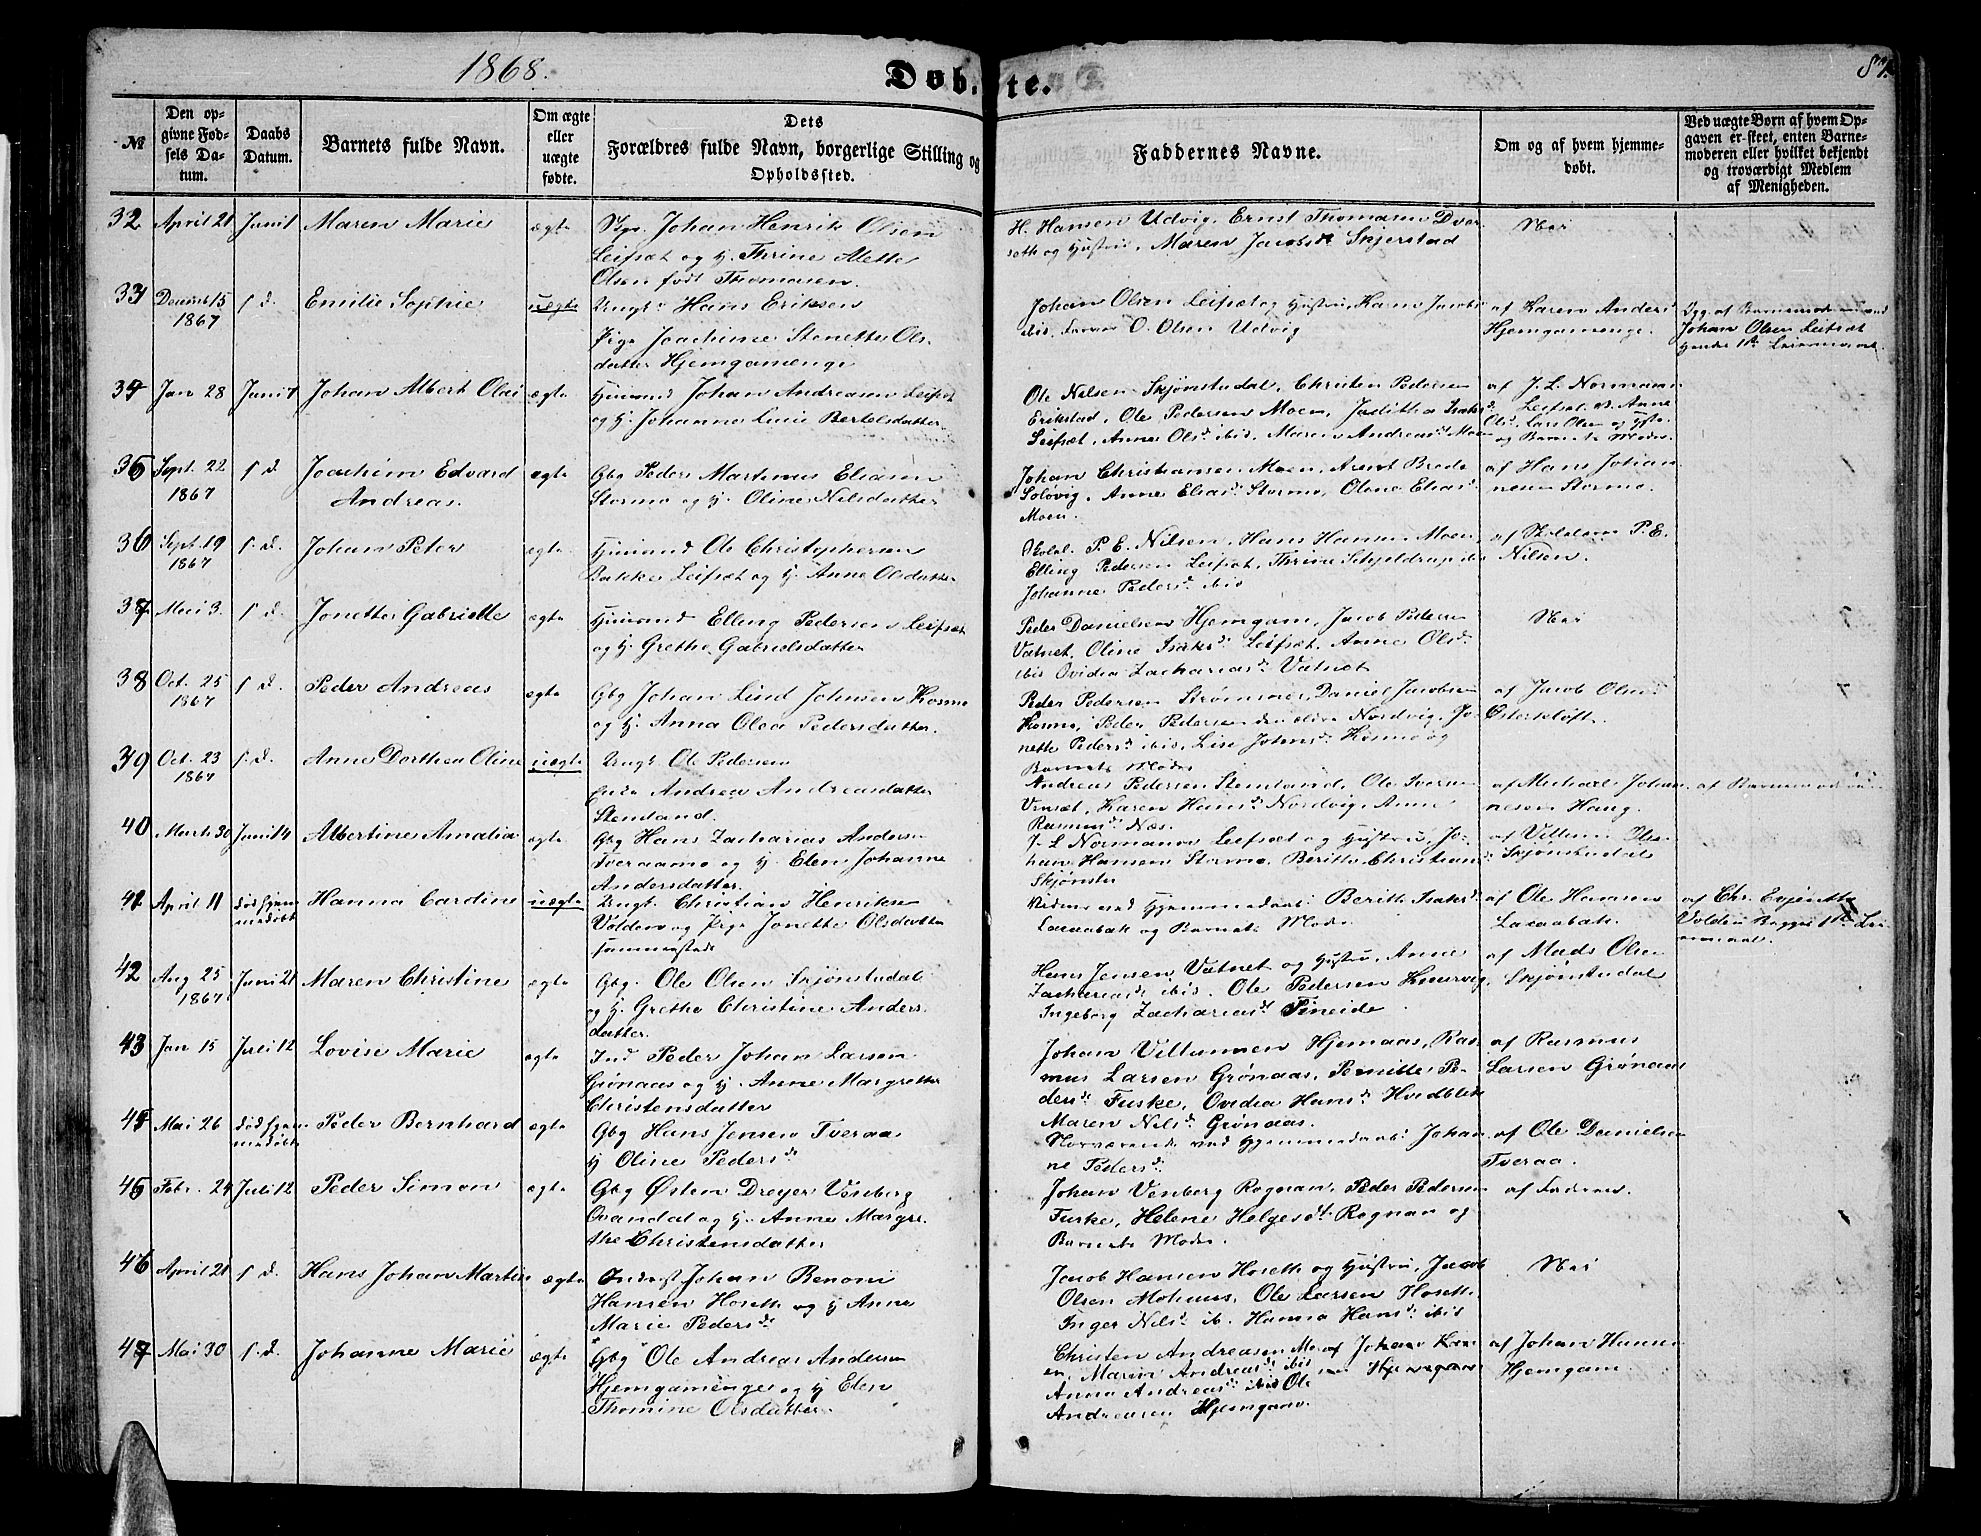 1868.
Døbte.
87.
№
Den opgivne Fødsels Datum.
Daabs Datum.
Barnets fulde Navn.
Om ægte eller uægte fødte.
Dets Forældres fulde Navn, borgerlige Stilling og Opholdssted.
Faddernes Navne.
Om og af hvem hjemmedøbt.
Ved uægte Børn af hvem Opgaven er skeet, enten Barnemoderen eller hvilket bekjendt og troværdigt Medlem af Menigheden.
32 April 21 Juni 1 Maren Marie ægte
Johan Henrik Olsen
Leifset og h. Thrine Aletta
Olsen født Thomasen
H. Hansen Udvig, Ernst Thomasen Dver-
seth og Hustru, Maren Jacobsd. Skjerstad
Nei
33 December 15 1867 s. d. Emilie Sophie uægte
Ungk. Hans Eriksen
Pige Joachime Stenette Ols-
datter Hjemgamenge
Johan Olsen Leifset og Hustru, Hans Jacobs
ibid. O. Olsen Udvig
af Karen Anders
Hjemgamenge.
Johan Olsen Leifset
34 Jan 28 Juni 1 Johan Albert Olai ægte
Huusmand Johan Andreasen Leifset
og h. Johanna Lucie Bertelsdatter
Ole Nilsen Skjønstudal, Christen Pedersen
Erikstad, Ole Pedersen Moen, Juditha Isaksd.
Leifset, Anne Olsd. ibid, Maren Andreasd. Moen
af J. L. Normann
Leifset, Anne
Olsd., Lars Olsen og
Barnets Moder.
35 Sept. 22 1867 s. d. Joachim Edvard
Andreas. ægte
Gbg Peder Martinus Eliasen
Stormo og h. Oline Nilsdatter
Johan Christiansen Moen, Arent Brede
Soløvig, Anne Eliasd. Stormo, Olina Eliasd.
Moen.
af Hans Johan-
nesen Stormo.
36 Sept. 19 1867 s. d. Johan Peter ægte
Huusmand Ole Christophersen
Bakke Leifset og h. Anne Olsdatter
Skolel. P. E. Nilsen, Hans Hansen Moen,
Elling Pedersen Leifset, Thrine Schjeldrup ibid
Johanna Pedersd. ibid
af Skolelærer P. E.
Nilsen.
37 Mai 3. s. d. Jonette Gabrielle ægte
Huusmand Elling Pedersen Leifset
og h. Grethe Gabrielsdatter
Peder Danielsen Hjemgam, Jacob Pedersen
Vatnet, Oline Isaksd. Leifset, Anne Olsd.
ibid Ovidia Zachariasd. Vatnet
Nei
38 Oct. 25 1867 s. d. Peder Andreas ægte
Gbg Johan Lind Johnsen Kosmo
og h. Anna Olea Pedersdatter.
Peder Pedersen Strømsnes, Daniel Jacobsen
Kosmo, Peder Pedersen den eldre Nordvig, Jo-
nette Pedersd. ibid, Lise Johnsd. Kosmo og
Barnets Moder
af Jacob Olsen
Østerkløft.
39 Oct. 23 1867 s. d. Anne Dorthea Oline uægte
Ungk. Ole Pedersen
Enke Andrea Andreasdatter
Stemland.
Andreas Pedersen Stemland, Ole Iversen
Venset, Karen Hansd. Nordvig, Anne
Rasmusd. Næs.
af Michael Johan-
nesen Haug.
af Barnemoderen
40 Marts 30 Juni 14 Albertine Amalia ægte
Gbg Hans Zacharias Anders
Tveraamo og h. Elen Johanne
Andersdatter.
J. L Normann Leifset og Hustru, Jo-
han Hansen Stormo, Beritte Christiansd.
Skjønstu
af Villum Ols
Skjønstudal
41 April 11 død hjem-
medøbt Hanna Cardine uægte
Ungk. Christian Henriksen
Valden og Pige Jonette Olsdatter
sammesteds
Viden ved Hjemmedaab: Berith Isaksd.
Laxaabak og Barnets Moder
af Ole Hansen
Laxaabak.
af Chr. Evjenth
42 Aug 25 1867 Juni 21 Maren Christine ægte
Gbg. Ole Olsen Skjønstudal
og h. Grethe Christine Anders-
datter.
Hans Jensen Vatnet og Hustru, Anne
Zachariasd. ibid. Ole Pedersen Kneurvig,
Ingeborg Zachariasd. Fineide
af Mads Olsen
Skjønstudal
43 Jan 15 Juli 12 Lovise Marie ægte
Ind Peder Johan Larsen
Grønaas og h. Anne Margrethe
Christensdatter
Johan Villumsen Hjemaas, Ras-
mus Larsen Grønaas, Pernille Pe-
dersd. Fuske, Ovidia Hansd. Hvidblik
Maren Nilsd. Grønaas.
af Rasmus
Larsen Grønaas
45 Mai 26 død hjem-
medøbt Peder Bernhard ægte
Gbg Hans Jensen Tveraa
h Oline Pedersd.
Nærværende ved Hjemmedaab: Johan-
ne Pedersd.
af Ole Danielsen
Tveraa.
45 Febr. 24 Juli 12 Peder Simon ægte
Gbg Østen Dreyer Venberg
Ovandal og h. Anne Margre-
the Christensdatter
Johan Venberg Rognan, Peder Pedersen
Fuske, Helene Helgesd. Rognan og
Barnets Moder.
af Faderen.
46 April 21 s. d. Hans Johan Martin ægte
Johan Benoni
Hansen Hoseth og h. Anne
Marie Pedersd.
Jacob Hansen Hoseth og Hustru, Jacob
Olsen Mohuus, Ole Larsen Hoseth
Inger Nilsd. ib. Hanna Hansd. ibid
Nei
47 Mai 30 s. d. Johanne Marie ægte
Gbg Ole Andreas Andersen
Hjemgamenge og h Elen
Thomine Olsdatter.
Christen Andreasen
Maren Andreasd. ibid
Anna Andreasd. ibid Ole
Andreasen Hjemgam.
af Johan Hansen
Hjemgam.